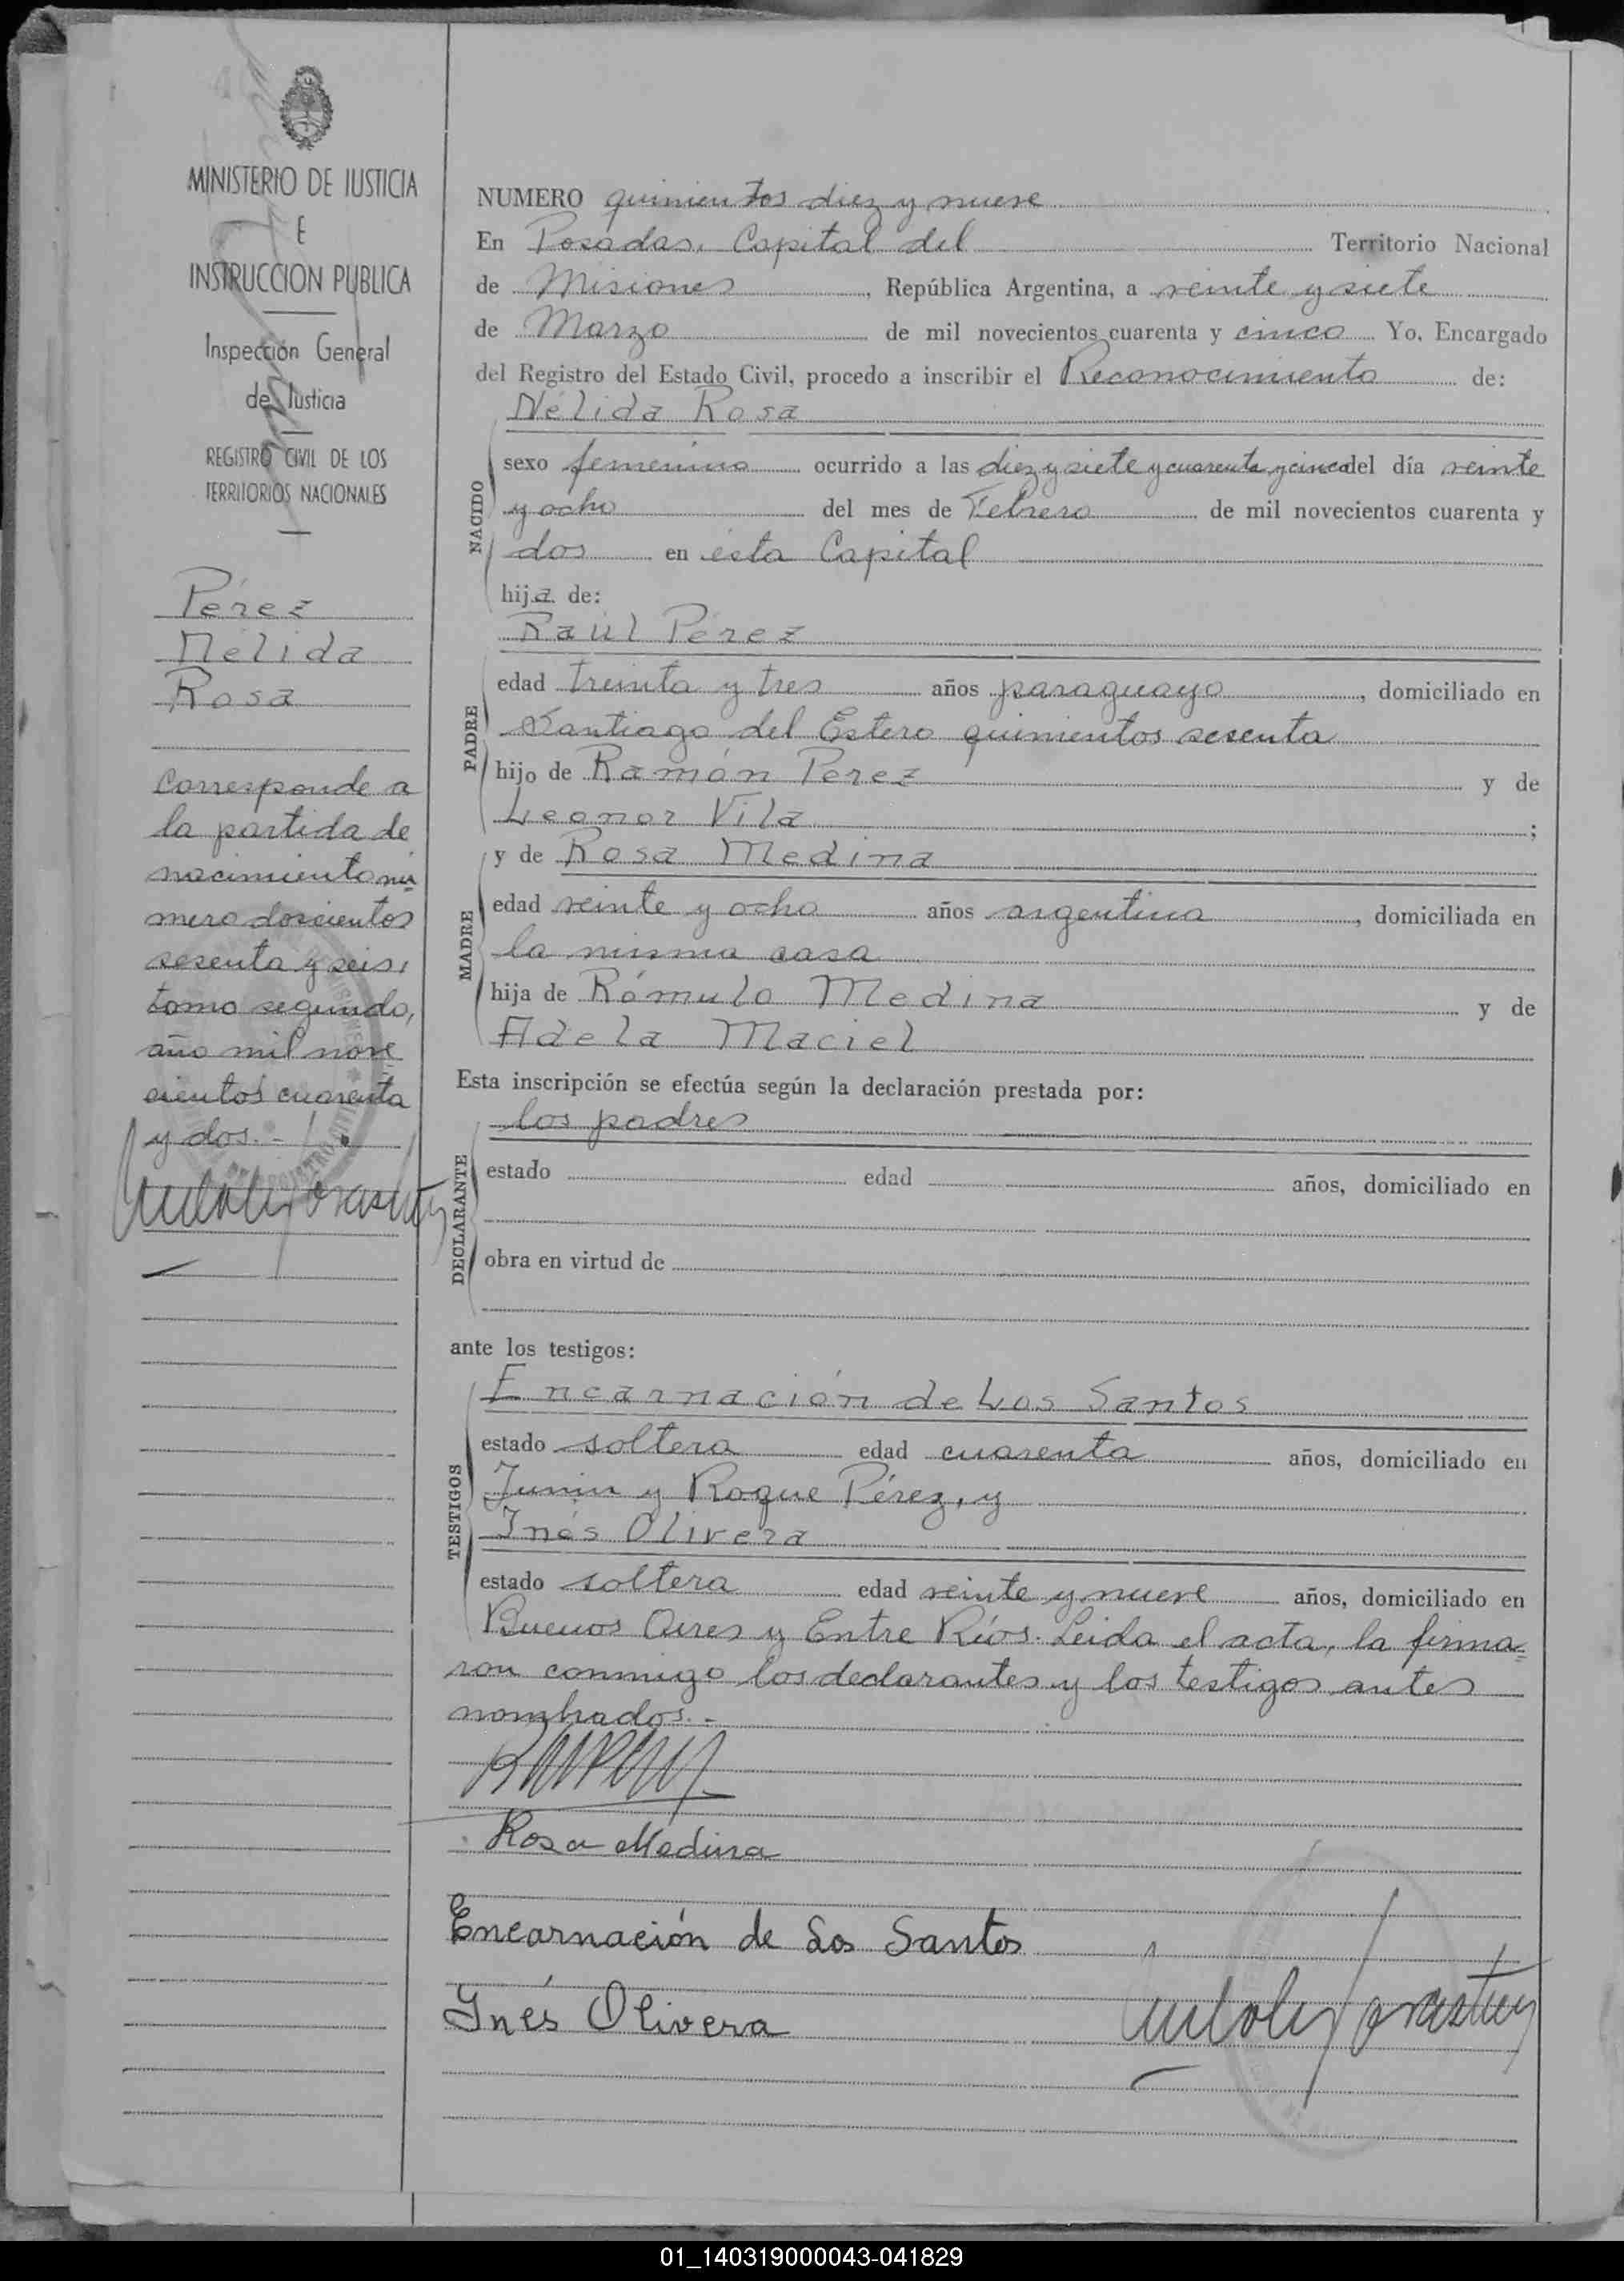 MINISTERIO DE JUSTICIA
E
INSTRUCCION PUBLICA
Inspección General
de Justicia
REGISTRO CIVIL DE LOS
TERRITORIOS NACIONALES
Pérez
Nélida
Rosa
Corresponde a
la partida de
nacimiento nú
mero doscientos
sesenta y seis,
tomo segundo,
año mil nove
cientos cuarenta
y dos.-
NUMERO quinientos diez y nueve
En Posadas, Capital del Territorio Nacional
de Misiones, República Argentina, a veinte y siete
de Marzo de mil novecientos cuarenta y cinco Yo, Encargado
del Registro del Estado Civil, procedo a inscribir el Reconocimiento de:
Nélida Rosa
NACIDO
sexo femenino ocurrido a las diez y siete y cuarenta y cinco del día veinte
y ocho del mes de Febrero de mil novecientos cuarenta y
dos en ésta Capital
hija de:
Raúl Pérez
PADRE
edad treinta y tres años paraguayo, domiciliado en
Santiago del Estero quinientos sesenta
hijo de Ramón Pérez y de
Leonor Vila;
y de Rosa Medina
MADRE
edad veinte y ocho años argentina, domiciliada en
la misma casa
hija de Rómulo Medina y de
Adela Maciel
Esta inscripción se efectúa según la declaración prestada por:
los padres
DECLARANTE
estado edad años, domiciliado en
obra en virtud de
ante los testigos:
Encarnación de Los Santos
TESTIGOS
estado soltera edad cuarenta años, domiciliado en
Junín y Roque Pérez, y
Inés Olivera
estado soltera edad veinte y nueve años, domiciliado en
Buenos Aires y Entre Ríos. Leída el acta, la firma=
ron conmigo los declarantes y los testigos antes
nombrados.-
Rosa Medina
Encarnación de Los Santos
Inés Olivera
01_140319000043-041829